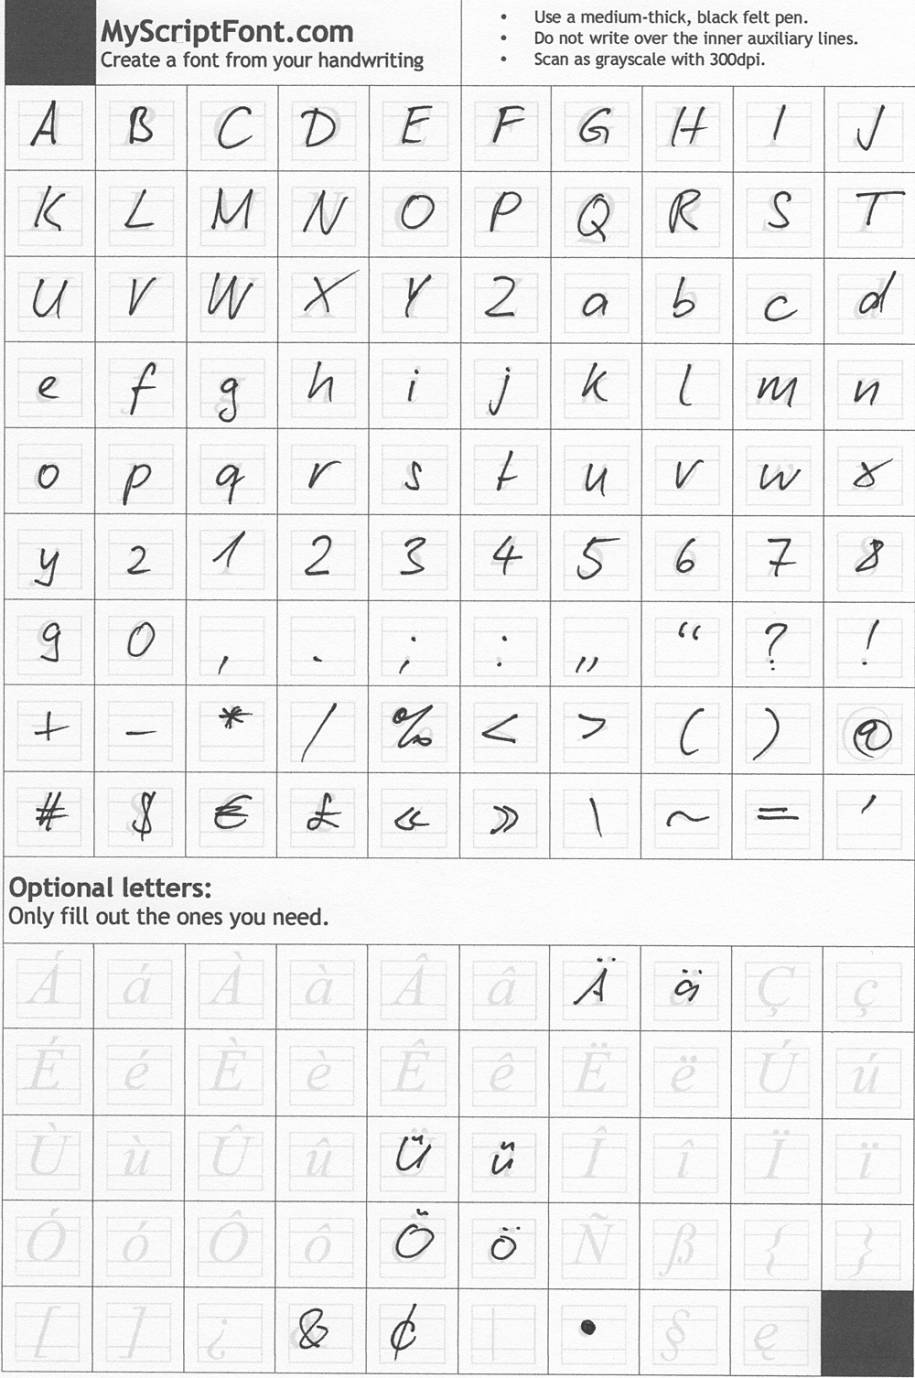 MyScriptFont.com
Create a font from your handwriting
• Use a medium-thick, black felt pen.
• Do not write over the inner auxiliary lines.
• Scan as grayscale with 300dpi.
A B C D E F G H I J
K L M N O P Q R S T
U V W X Y Z a b c d
e f g h i j k l m n
o p q r s t u v w x
y z 1 2 3 4 5 6 7 8
9 0 , . ; : „ “ ? !
+ - * / % < > ( ) @
# $ € £ « » \ ~ = '
Optional letters:
Only fill out the ones you need.
Á á À à Â â Ä ä Ç ç
É é È è Ê ê Ë ë Ú ú
Ù ù Û û Ü ü Î î Ï ï
Ó ó Ô ô Ö ö Ñ ß { }
[ ] ¿ & ¢ | • § ę